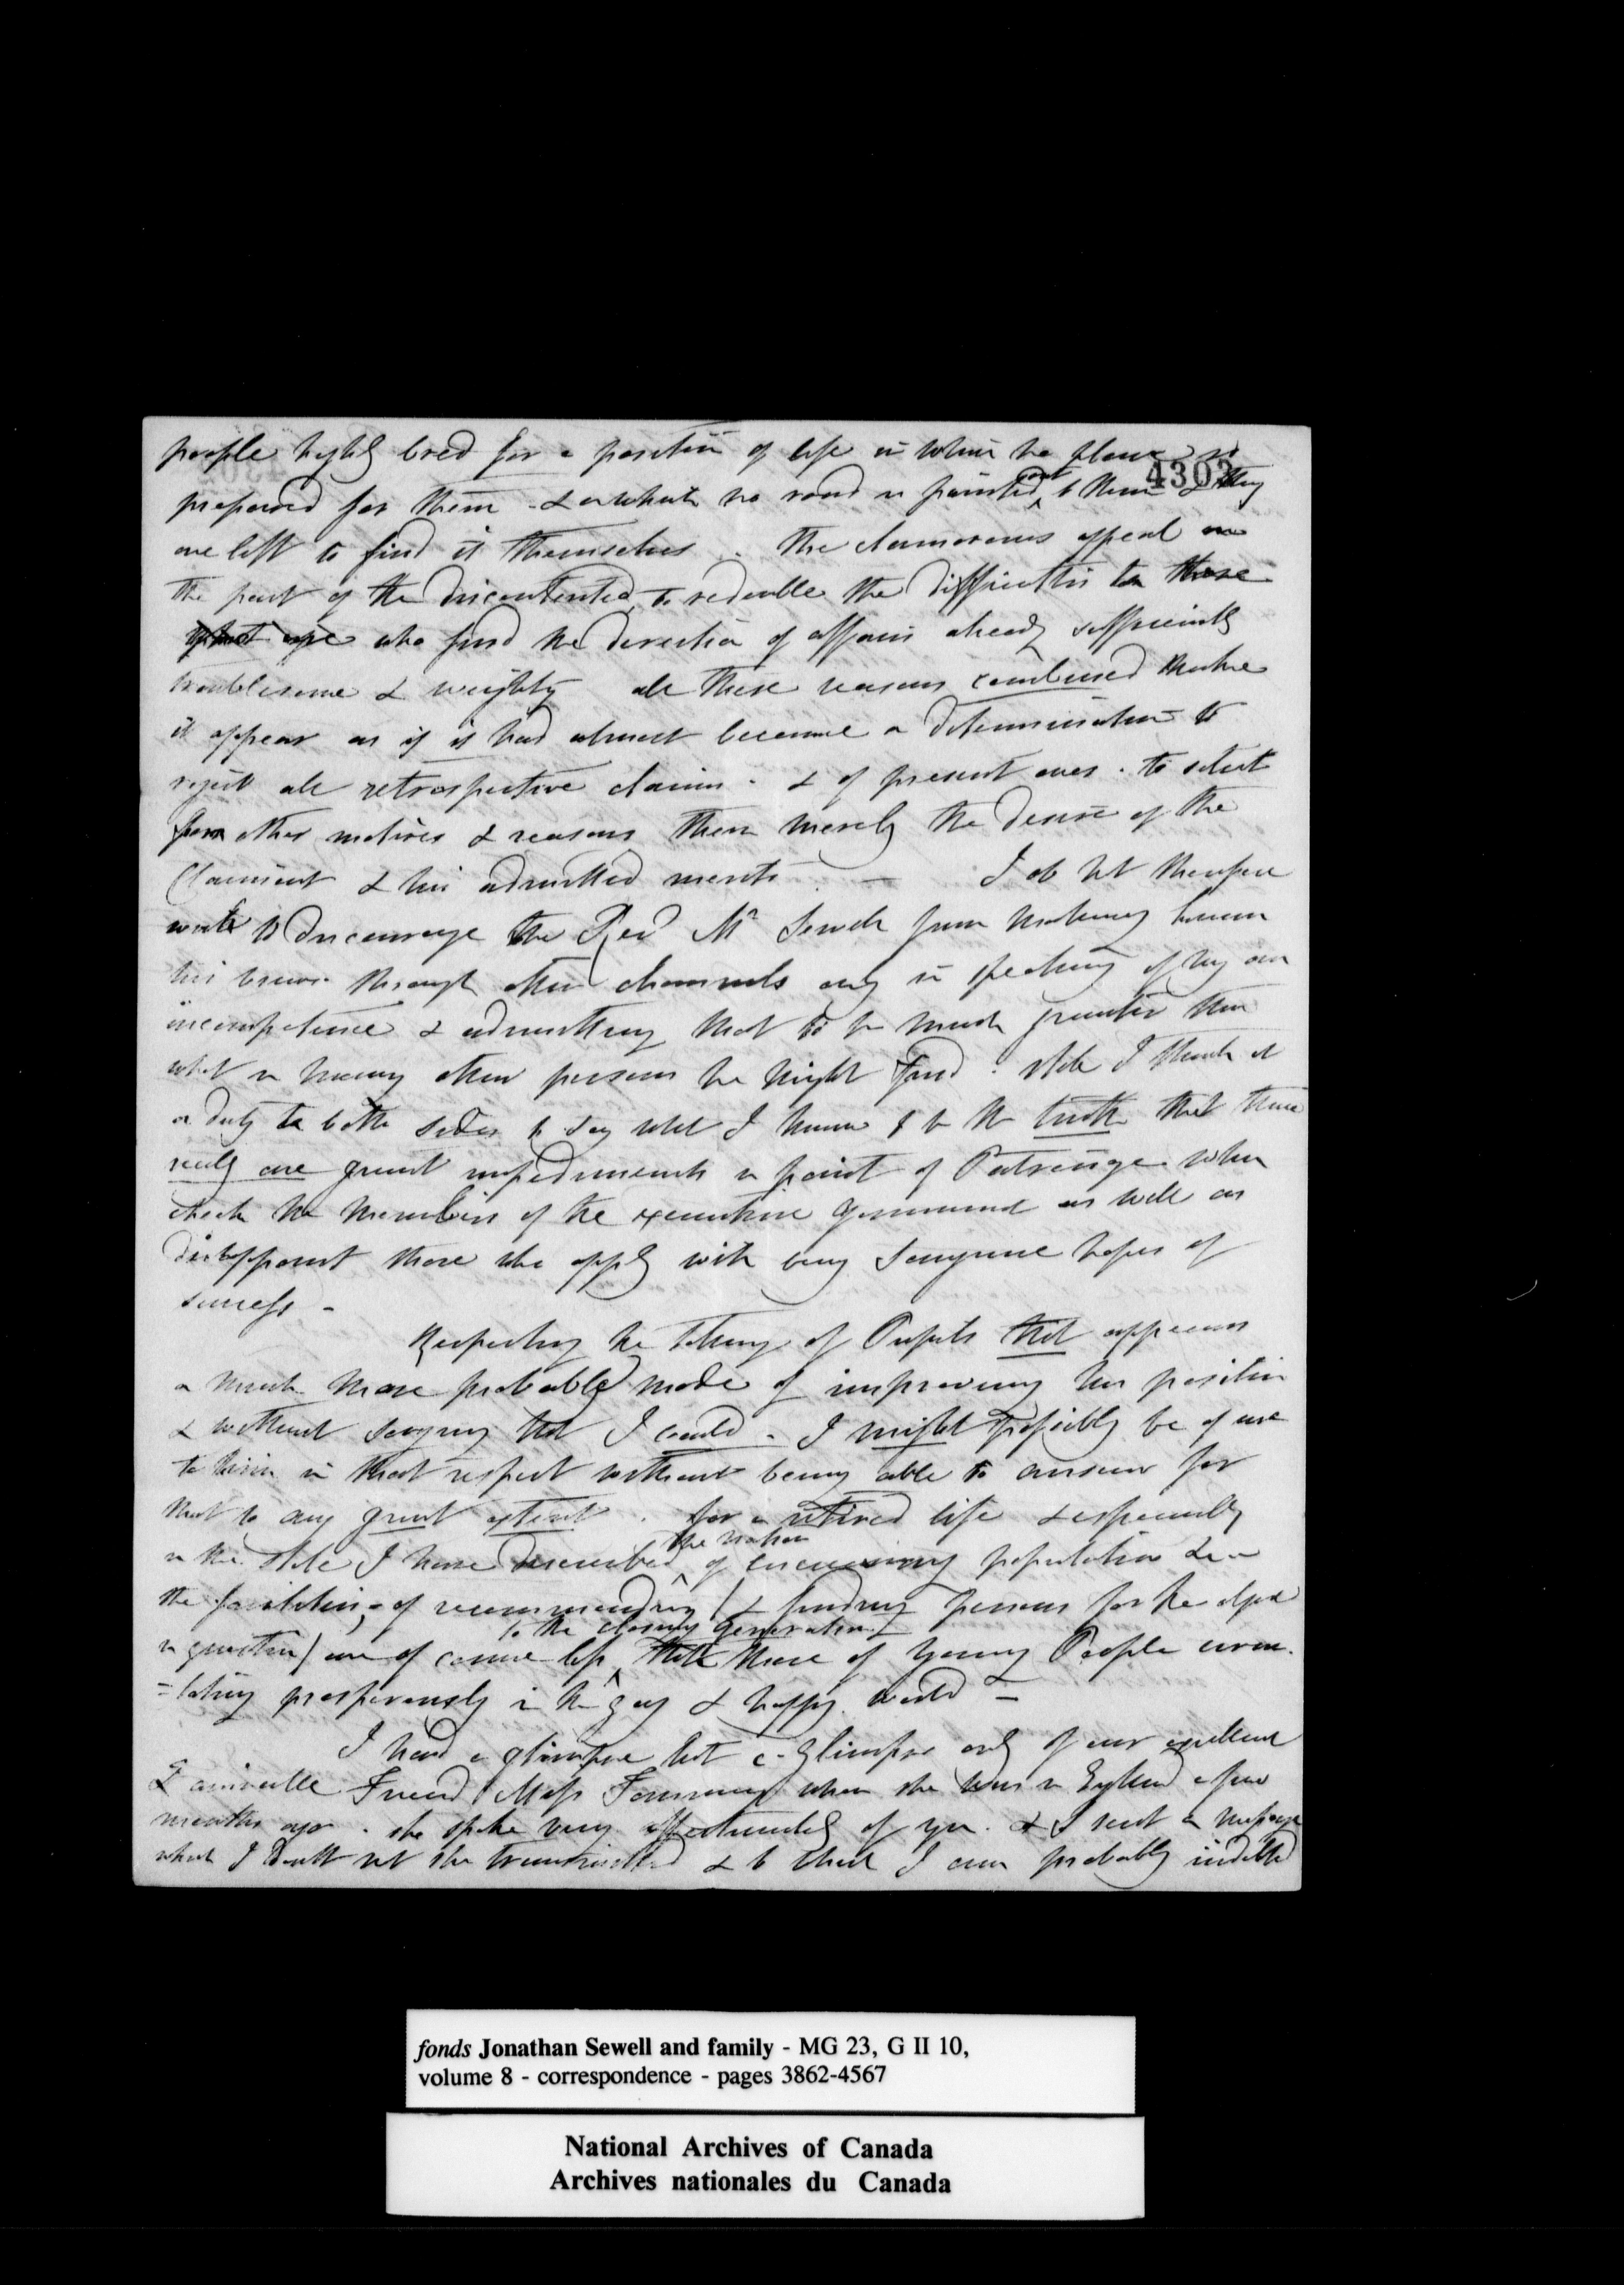 people highly bred for a position of life in which no place is
4303
prepared for them - & on which no road is pointed out to them & they
are left to find it themselves. The clamorous appeal on
the part of the discontented, to redouble the difficulties to those
who find the direction of affairs already sufficiently
troublesome & weighty all these reasons combined make
it appear as if it had almost become a determination to
reject all retrospective claims - & of present ones - to select
from other motives & reasons than merely the desire of the
Claimant & his admitted merits. — I do not therefore
write to discourage the Revd Mr Sewell from making known
his views through other channels only in speaking of my own
incompetence & admitting that to be much greater than
what in many other persons he might find - still I think it
a duty to both sides to say what I know to be the truth that there
really are great impediments in point of Patronage which
check the Members of the executive government as well as
disappoint those who apply with very sanguine hopes of
success -
Respecting the taking of Pupils that appears
a much more probable mode of improving his position
& without saying that I could - I might possibly be of use
to him in that respect without being able to answer for
that to any great extent. for a retired life & especially
in the state I have described the nation of increasing population &
the facilities of recommending / & finding persons for the object
in question / are of course less to the closing generation than those of Young People circu-
=lating prosperously in the gay & happy world -
I had a glimpse but a glimpse only of our excellent
& amiable Friend Miss when she was in England a few
months ago - she spoke very affectionately of you - & I sent a message
which I doubt not she transmitted & to which I am probably indebted
fonds Jonathan Sewell and family - MG 23, G II 10,
volume 8 - correspondence - pages 3862-4567
National Archives of Canada
Archives nationales du Canada